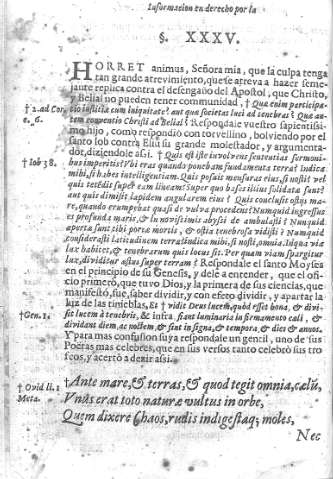 Informacion en derecho por la
§. XXXV.
HORRET animus, Señora mia, que la culpa tenga
tan grande atrevimiento, que se atreva a hazer seme-
jante replica contra el desengaño del Apostol, que Christo,
† 2. ad Cor. 6.
y Belial no pueden tener communidad, † Quæ enim participa-
tio iustitiæ cum iniquitate? aut qua societas luci ad tenebras? Quæ au-
tem conventio Christi ad Belial? Respondale vuestro sapientissi-
mo hijo, como respondiò con torvellino, bolviendo por el
santo Iob contra Eliù su grande molestador, y argumenta-
† Iob 38.
dor, diziendole assi. † Quis est iste involvens sententias sermoni-
bus imperitis? Vbi eras quando ponebam fundamenta terræ? Indica
mihi, si habes intelligentiam. Quis posuit mensuras eius, si nosti? vel
quis tetendit super eam lineam? Super quo bases illius solidatæ sunt?
aut quis dimisit lapidem angularem eius? Quis conclusit ostijs ma-
re, quando erumpebat quasi de vulva procedens? Numquid ingressus
es profunda maris, & in novissimis abyssi deambulasti? Numquid
apertæ sunt tibi portæ mortis, & ostia tenebrosa vidisti? Numquid
considerasti latitudinem terræ? indica mihi, si nosti, omnia. In qua via
lux habitet, & tenebrarum quis locus sit. Per quam viam spargitur
lux, dividitur æstus super terram? Respondale el santo Moysen
en el principio de su Genesis, y dele a entender, que el ofi-
cio primero, que tuvo Dios, y la primera de sus ciencias, que
manifestò, fue, saber dividir, y con efeto dividir, y apartar la
luz de las tinieblas, Et † vidit Deus lucem, quòd esset bona, & divi-
† Gen. 1.
sit lucem à tenebris, & infra. fiant luminaria in firmamento cæli, &
dividant diem, ac noctem, & sint in signa, & tempora, & dies & annos.
Y para mas confusion suya respondale un gentil, uno de sus
Poetas mas celebres, que en sus versos tanto celebrò sus tro-
feos, y acertò a dezir assi.
† Ovid li. 1. Meta.
† Ante mare, & terras, & quod tegit omnia, cælũ,
Vnus erat toto naturæ vultus in orbe,
Quem dixere Chaos, rudis indigestaq; moles,
Nec